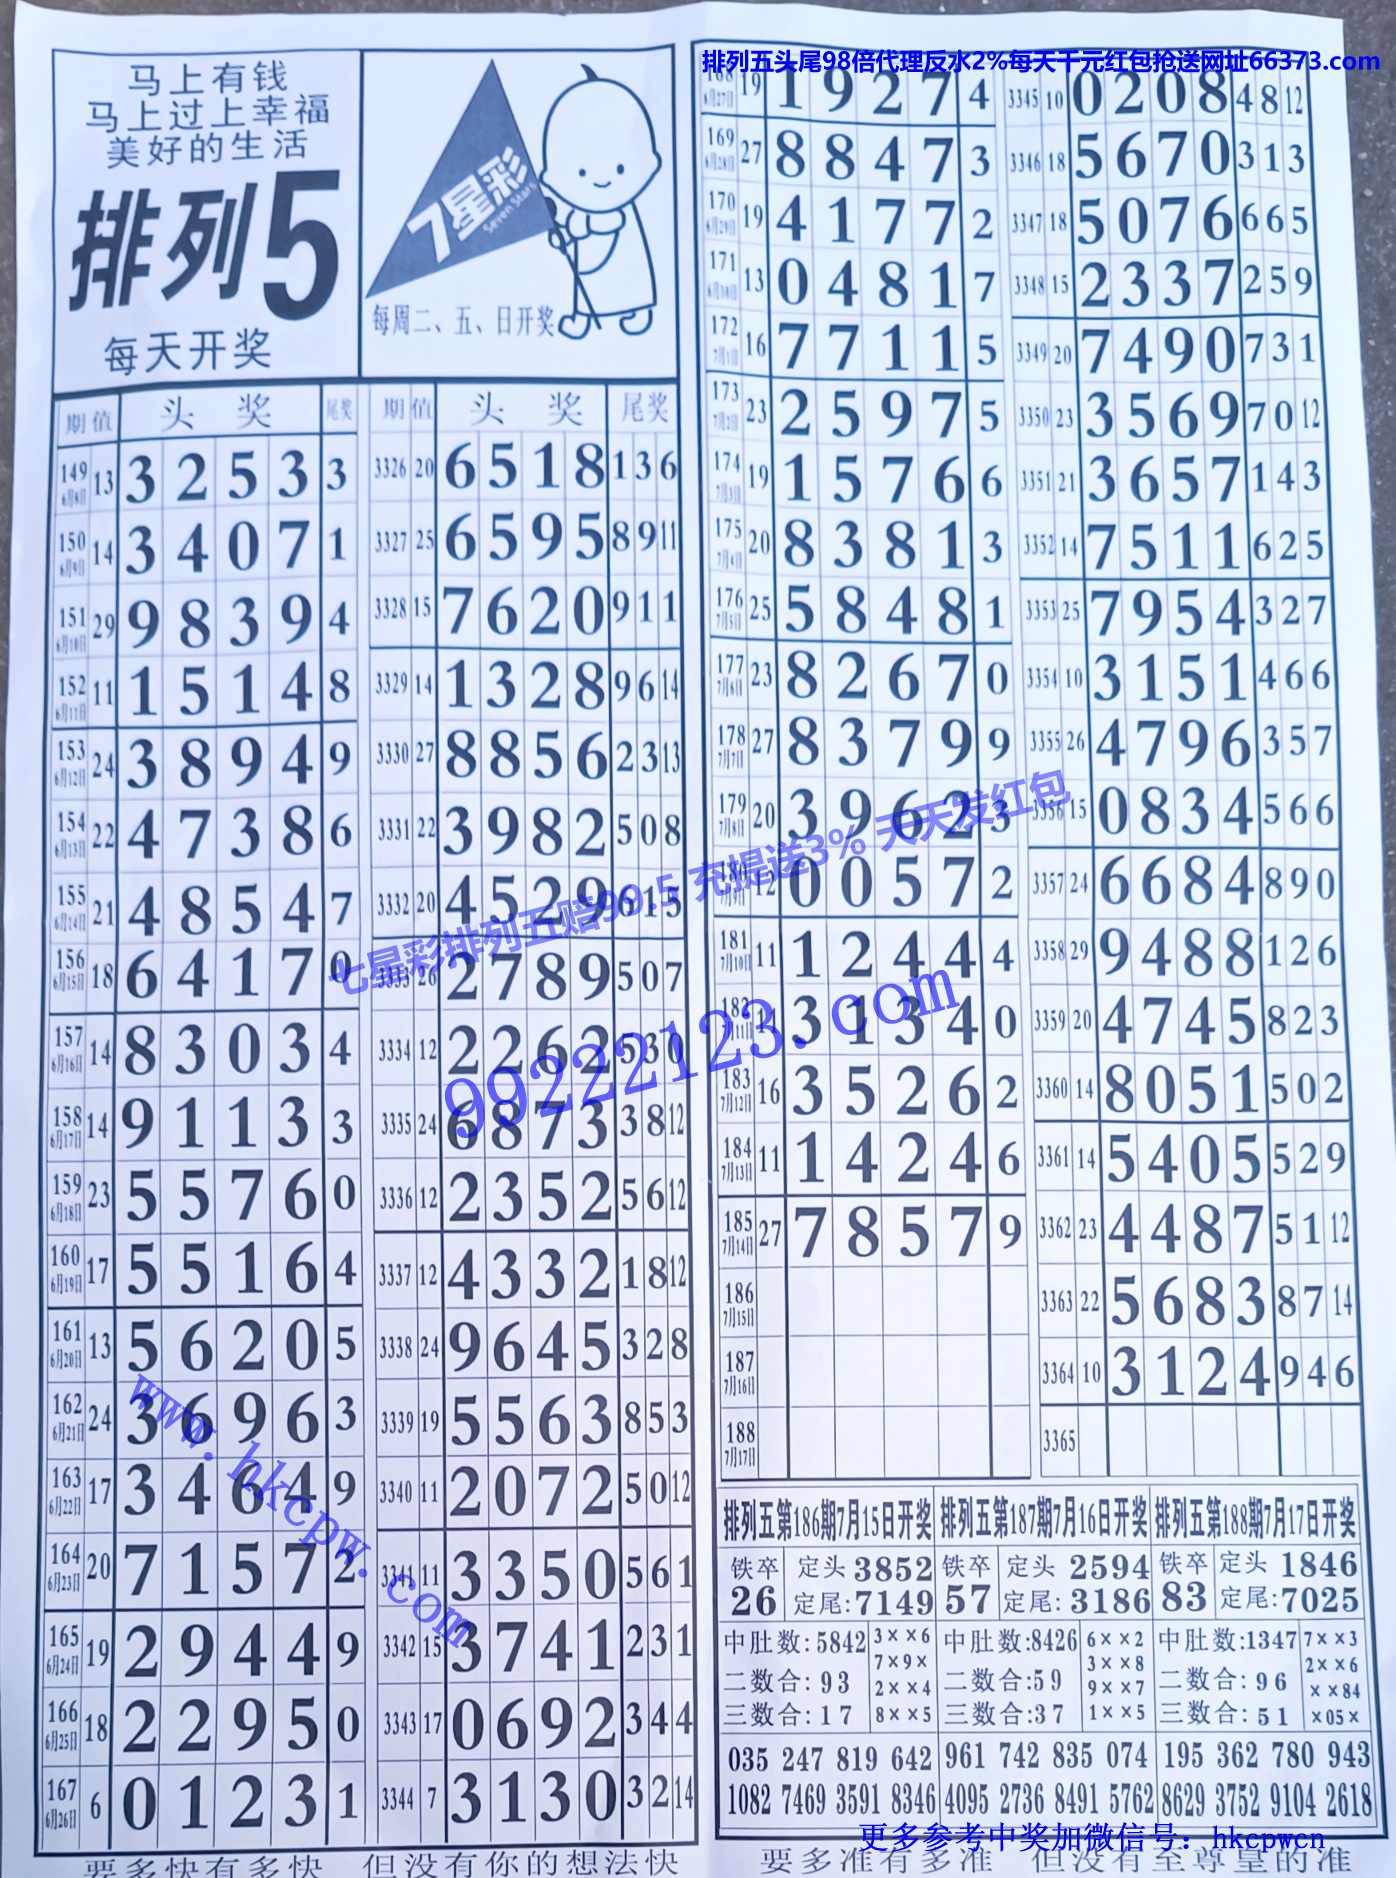 排列五头尾98倍代理反水2%每天千元红包抢送网址66373.com
马上有钱
马上过上幸福
美好的生活
排列5
每天开奖
7星彩
Seven Stars
每周二、五、日开奖
期 值 头 奖 尾奖
149 6月8日 13 3 2 5 3 3
150 6月9日 14 3 4 0 7 1
151 6月10日 29 9 8 3 9 4
152 6月11日 11 1 5 1 4 8
153 6月12日 24 3 8 9 4 9
154 6月13日 22 4 7 3 8 6
155 6月14日 21 4 8 5 4 7
156 6月15日 18 6 4 1 7 0
157 6月16日 14 8 3 0 3 4
158 6月17日 14 9 1 1 3 3
159 6月18日 23 5 5 7 6 0
160 6月19日 17 5 5 1 6 4
161 6月20日 13 5 6 2 0 5
162 6月21日 24 3 6 9 6 3
163 6月22日 17 3 4 6 4 9
164 6月23日 20 7 1 5 7 2
165 6月24日 19 2 9 4 4 9
166 6月25日 18 2 2 9 5 0
167 6月26日 6 0 1 2 3 1
期 值 头 奖 尾奖
3326 20 6 5 1 8 1 3 6
3327 25 6 5 9 5 8 9 11
3328 15 7 6 2 0 9 1 1
3329 14 1 3 2 8 9 6 14
3330 27 8 8 5 6 2 3 13
3331 22 3 9 8 2 5 0 8
3332 20 4 5 2 9 6 1 5
3333 26 2 7 8 9 5 0 7
3334 12 2 2 6 2 5 3 0
3335 24 6 8 7 3 3 8 12
3336 12 2 3 5 2 5 6 12
3337 12 4 3 3 2 1 8 12
3338 24 9 6 4 5 3 2 8
3339 19 5 5 6 3 8 5 3
3340 11 2 0 7 2 5 0 12
3341 11 3 3 5 0 5 6 1
3342 15 3 7 4 1 2 3 1
3343 17 0 6 9 2 3 4 4
3344 7 3 1 3 0 3 2 14
168 6月27日 19 1 9 2 7 4
169 6月28日 27 8 8 4 7 3
170 6月29日 19 4 1 7 7 2
171 6月30日 13 0 4 8 1 7
172 7月1日 16 7 7 1 1 5
173 7月2日 23 2 5 9 7 5
174 7月3日 19 1 5 7 6 6
175 7月4日 20 8 3 8 1 3
176 7月5日 25 5 8 4 8 1
177 7月6日 23 8 2 6 7 0
178 7月7日 27 8 3 7 9 9
179 7月8日 20 3 9 6 2 3
180 7月9日 12 0 0 5 7 2
181 7月10日 11 1 2 4 4 4
182 7月11日 3 1 3 4 0
183 7月12日 16 3 5 2 6 2
184 7月13日 11 1 4 2 4 6
185 7月14日 27 7 8 5 7 9
186 7月15日
187 7月16日
188 7月17日
3345 10 0 2 0 8 4 8 12
3346 18 5 6 7 0 3 1 3
3347 18 5 0 7 6 6 6 5
3348 15 2 3 3 7 2 5 9
3349 20 7 4 9 0 7 3 1
3350 23 3 5 6 9 7 0 12
3351 21 3 6 5 7 1 4 3
3352 14 7 5 1 1 6 2 5
3353 25 7 9 5 4 3 2 7
3354 10 3 1 5 1 4 6 6
3355 26 4 7 9 6 3 5 7
3356 15 0 8 3 4 5 6 6
3357 24 6 6 8 4 8 9 0
3358 29 9 4 8 8 1 2 6
3359 20 4 7 4 5 8 2 3
3360 14 8 0 5 1 5 0 2
3361 14 5 4 0 5 5 2 9
3362 23 4 4 8 7 5 1 12
3363 22 5 6 8 3 8 7 14
3364 10 3 1 2 4 9 4 6
3365
七星彩排列五赔99.5 充提送3% 天天发红包
99222123.com
www.hkcpw.com
排列五第186期7月15日开奖
铁卒 26 定头 3852
定尾:7149
中肚数:5842
二数合:93
三数合:17
3××6
7×9×
2××4
8××5
035 247 819 642
1082 7469 3591 8346
排列五第187期7月16日开奖
铁卒 57 定头 2594
定尾:3186
中肚数:8426
二数合:59
三数合:37
6××2
3××8
9××7
1××5
961 742 835 074
4095 2736 8491 5762
排列五第188期7月17日开奖
铁卒 83 定头 1846
定尾:7025
中肚数:1347
二数合:96
三数合:51
7××3
2××6
××84
×05×
195 362 780 943
8629 3752 9104 2618
更多参考中奖加微信号：hkcpwcn
要多快有多快 但没有你的想法快
要多准有多准 但没有至尊皇的准